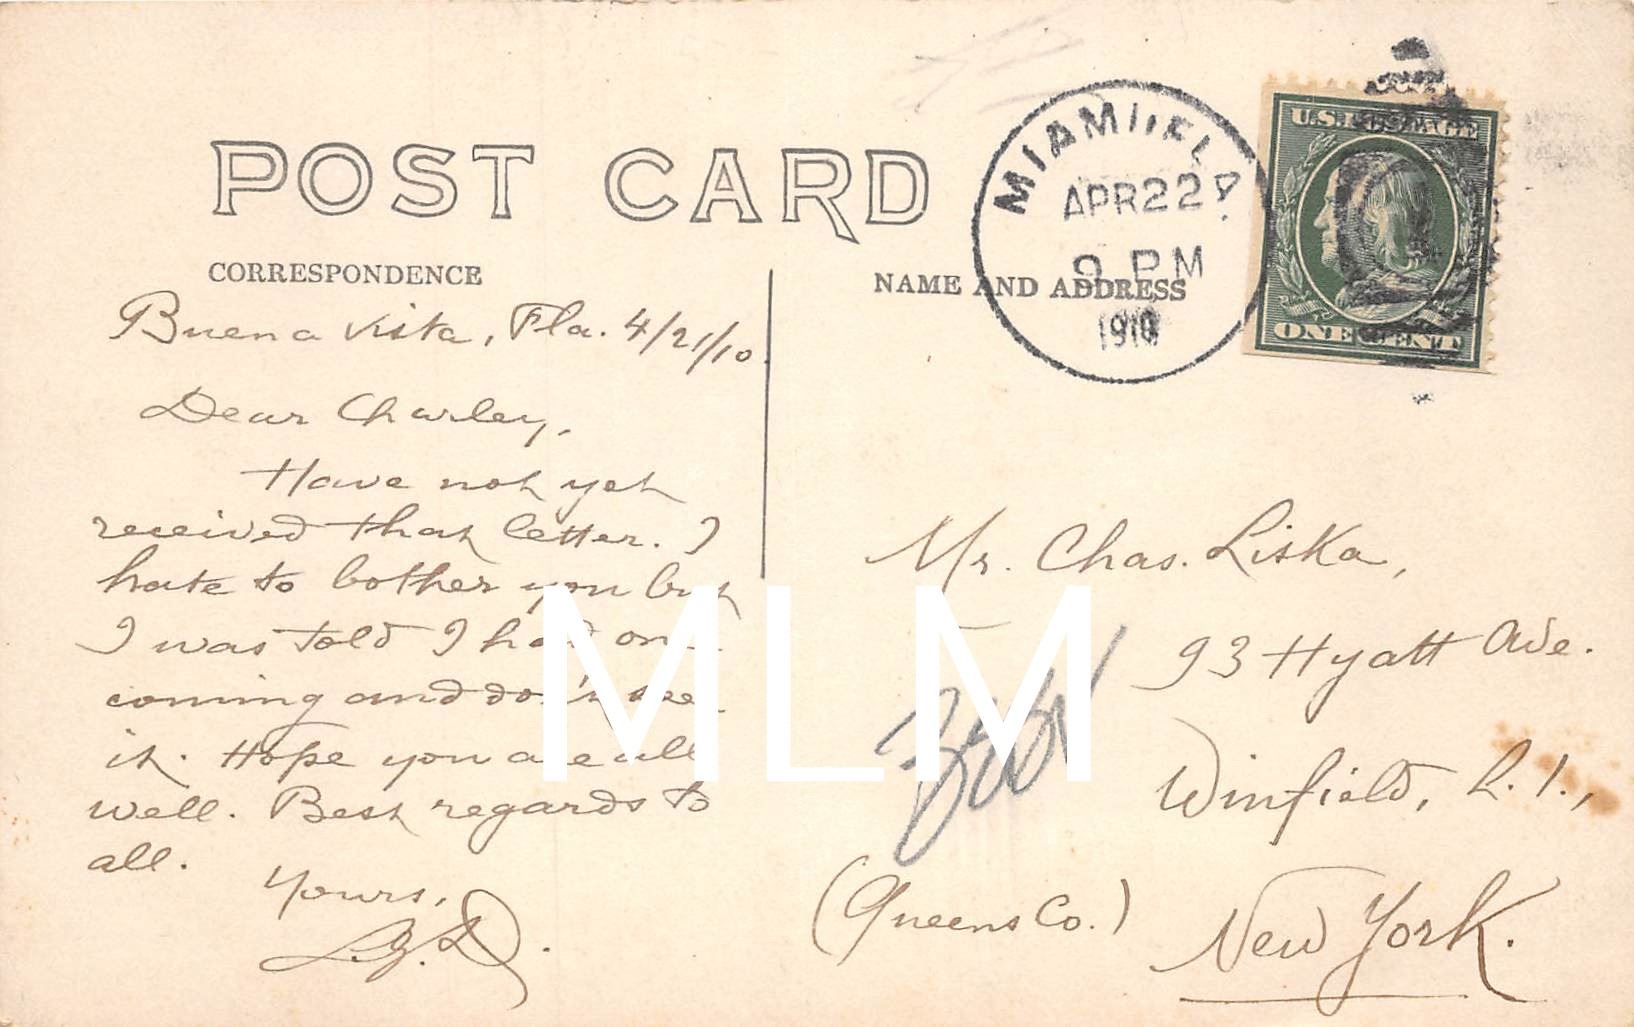 POST CARD
CORRESPONDENCE
NAME AND ADDRESS
MIAMI, FLA.
APR 22
9 PM
1910
U.S. POSTAGE
ONE CENT
Buena Vista, Fla. 4/21/10.
Dear Charley,
Have not yet
received that letter. I
hate to bother you but
I was told I had one
coming and don't see
it. Hope you are all
well. Best regards to
all.
Yours,
Mr. Chas. Liska,
93 Hyatt Ave.
Winfield, L.I.,
(Queens Co.)
New York.
MLM